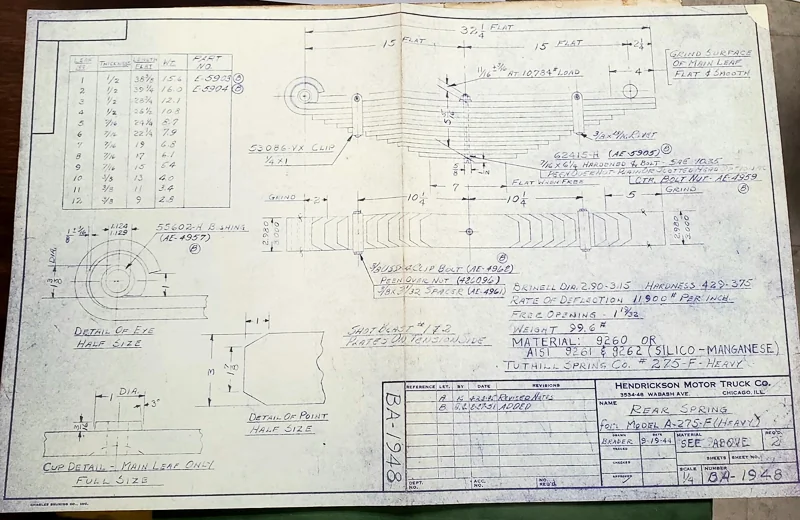 37 1/4 FLAT
15 FLAT
15 FLAT
2 1/4
4
GRIND SURFACE
OF MAIN LEAF
FLAT & SMOOTH
AT 10,784# LOAD
LEAF THICKNESS LENGTH FLAT WT. PART NO.
1 1/2 15.6 E-5903 (B)
2 1/2 16.0 E-5904 (B)
3 1/2 12.1
4 1/2
5 7/16 8.7
6 7/16 22 1/4 7.9
7 7/16 19 6.8
8 7/16 17 6.1
9 7/16 15 5.4
10 3/8 13 4.0
11 3/8 11 3.4
12 3/8 9 2.8
53086-VX CLIP
1/4 X 1
RIVET
62415-H (AE-5905) (B)
7/16 X 6 1/4 HARDENED BOLT SAE 1035
CTR. BOLT NUT- AE-4959
7
FLAT WHEN FREE
GRIND
2
10 1/4
10 1/4
5
GRIND
(B)
2.980
3.000
2.980
3.000
55602-H BUSHING
(AE-4957)
(B)
1.124
1.129
DIA.
1
DETAIL OF EYE
HALF SIZE
CLIP BOLT (AE-4962)
(B)
PEEN OVER NUT (426096)
SPACER (AE-4961)
BRINELL DIA. 2.90-3.15 HARDNESS 429-375
RATE OF DEFLECTION 11900# PER INCH.
FREE OPENING - 1 19/32
WEIGHT 99.6#
MATERIAL: 9260 OR
AISI 9261 & 9262 (SILICO-MANGANESE)
TUTHILL SPRING CO. # 275-F-HEAVY
SHOT BLAST # 1 & 2
PLATES ON TENSION SIDE
1
3
DETAIL OF POINT
HALF SIZE
1 DIA.
3°
CUP DETAIL - MAIN LEAF ONLY
FULL SIZE
BA-1948
REFERENCE LET. BY DATE REVISIONS
A REVISED NOTES
B ADDED
DEPT. NO. ACC. NO. NO. REQ'D.
HENDRICKSON MOTOR TRUCK CO.
3534-46 WABASH AVE. CHICAGO, ILL.
NAME
REAR SPRING
FOR MODEL A-275-F (HEAVY)
DRAWN DATE
BRADER 9-19-44
TRACED
CHECKED
APPROVED
MATERIAL
SEE ABOVE
REQ'D.
2
SHEETS SHEET NO.
SCALE
1/4
NUMBER
BA-1948
CHARLES BRUNING CO., INC.